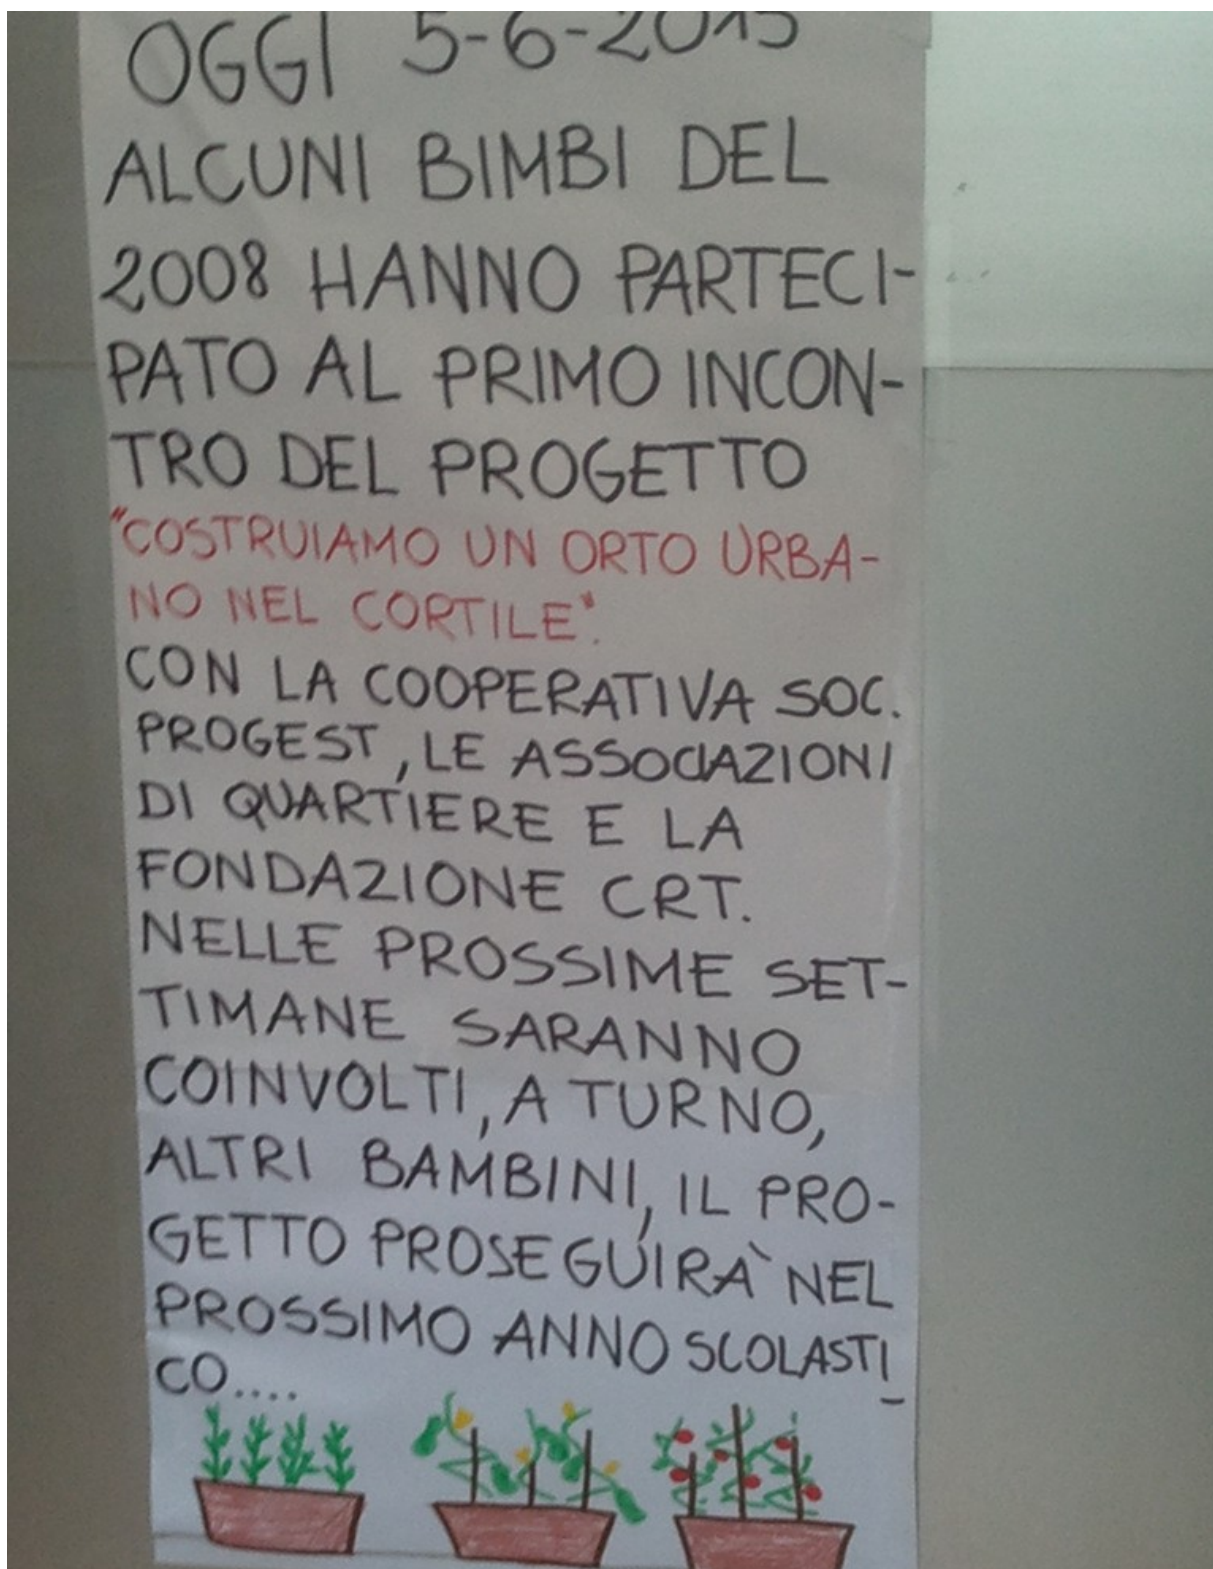 OGGI 5-6-2015
ALCUNI BIMBI DEL
2008 HANNO PARTECI-
PATO AL PRIMO INCON-
TRO DEL PROGETTO
"COSTRUIAMO UN ORTO URBA-
NO NEL CORTILE".
CON LA COOPERATIVA SOC.
PROGEST, LE ASSOCIAZIONI
DI QUARTIERE E LA
FONDAZIONE CRT.
NELLE PROSSIME SET-
TIMANE SARANNO
COINVOLTI, A TURNO,
ALTRI BAMBINI, IL PRO-
GETTO PROSEGUIRÀ NEL
PROSSIMO ANNO SCOLASTI_
CO....